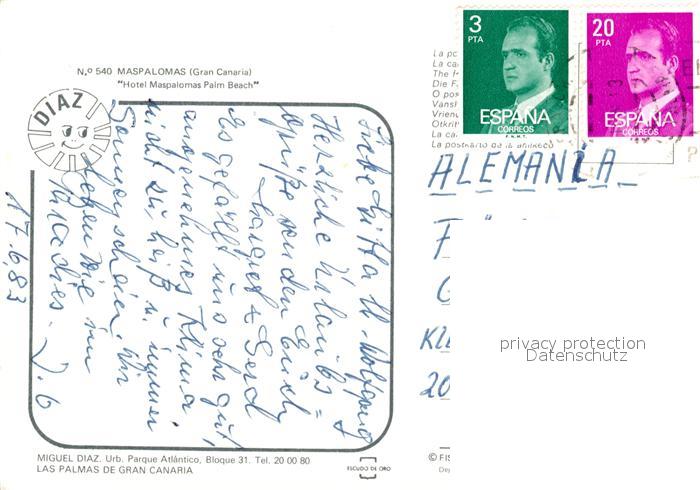 N.º 540 MASPALOMAS (Gran Canaria)
"Hotel Maspalomas Palm Beach"
DIAZ
Liebe Gitta u. Wolfgang
Herzliche Urlaubs=
grüße senden Euch
Margret & Gerd
Es gefällt uns sehr gut,
angenehmes Klima
nicht zu heiß u. immer
Sonnenschein. Wir
leben wie im
Paradies.
17.6.83
MIGUEL DIAZ. Urb. Parque Atlántico, Bloque 31. Tel. 20 00 80
LAS PALMAS DE GRAN CANARIA
ESCUDO DE ORO
3
PTA
ESPAÑA
CORREOS
F.N.M.T.
20
PTA
ESPAÑA
CORREOS
La po
La ca
The
Die F
O pos
Vansk
Vrien
Otkrit
La ca
La postkarto de la
ALEMANIA
F
G
KLE
20
© FIS
De
privacy protection
Datenschutz